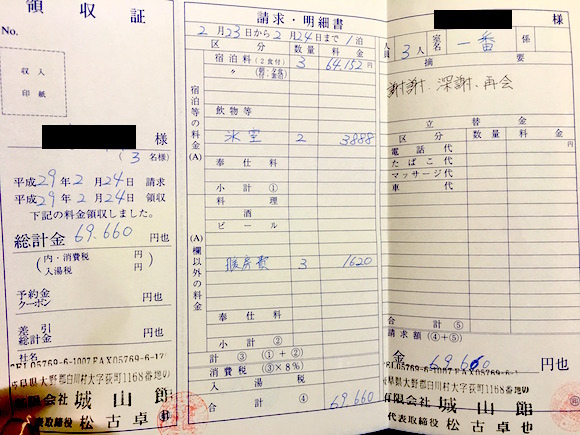 領収証
No.
収入
印紙
様
(3名様)
平成29年2月24日 請求
平成29年2月24日 領収
下記の料金領収しました。
総計金 69.660 円也
(内・消費税 円
入湯税 円)
予約金
クーポン 円也
差引
総計金 円也
社名
TEL05769-6-1007FAX05769-6-17
岐阜県大野郡白川村大字荻町1168番地の
有限会社 城山館
代表取締役 松古卓也
請求・明細書
2月23日から2月24日まで1泊
区分 数量 料金
宿泊等の料金(A)
宿泊料(2食付) 3 64,152円
〃
飲物等
氷室 2 3888
奉仕料
小計①
(A)欄以外の料金
料理
酒
ビール
暖房費 3 1620
奉仕料
小計②
計③ (①+②)
消費税 (③×8%)
入湯税
合計④ 69.660
様
人員 3人 室名 一番 係
摘要
謝謝、深謝、再会
立替金
区分 数量 料金
電話代
たばこ代
マッサージ代
車代
合計⑤
請求額(④+⑤)
金 69,660
TEL05769-6-1007FAX05769-6-17
岐阜県大野郡白川村大字荻町1168番地の
有限会社 城山館
代表取締役 松古卓也